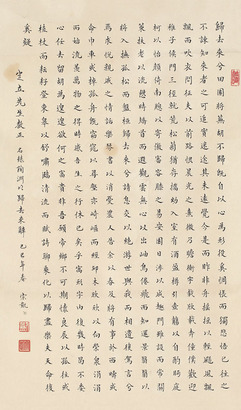 歸去來兮田園將蕪胡不歸既自以心為形役奚惆悵而獨悲悟已往之
不諫知來者之可追實迷途其未遠覺今是而昨非舟搖搖以輕颺風飄
飄而吹衣問征夫以前路恨晨光之熹微乃瞻衡宇載欣載奔僮僕歡迎
稚子候門三徑就荒松菊猶存攜幼入室有酒盈樽引壺觴以自酌眄庭
柯以怡顏倚南窗以寄傲審容膝之易安園日涉以成趣門雖設而常關
策扶老以流憩時矯首而遐觀雲無心以出岫鳥倦飛而知還景翳翳以
將入撫孤松而盤桓歸去來兮請息交以絕遊世與我而相遺復駕言兮
焉求悅親戚之情話樂琴書以消憂農人告余以春及將有事於西疇或
命巾車或棹孤舟既窈窕以尋壑亦崎嶇而經邱木欣欣以向榮泉涓涓
而始流羨萬物之得時感吾生之行休已矣乎寓形宇內復幾時曷不委
心任去留胡為遑遑欲何之富貴非吾願帝鄉不可期懷良辰以孤往或
植杖而耘耔登東皋以舒嘯臨清流而賦詩聊乘化以歸盡樂夫天命復
奚疑
定立先生教正
歸去來辭 己巳年春